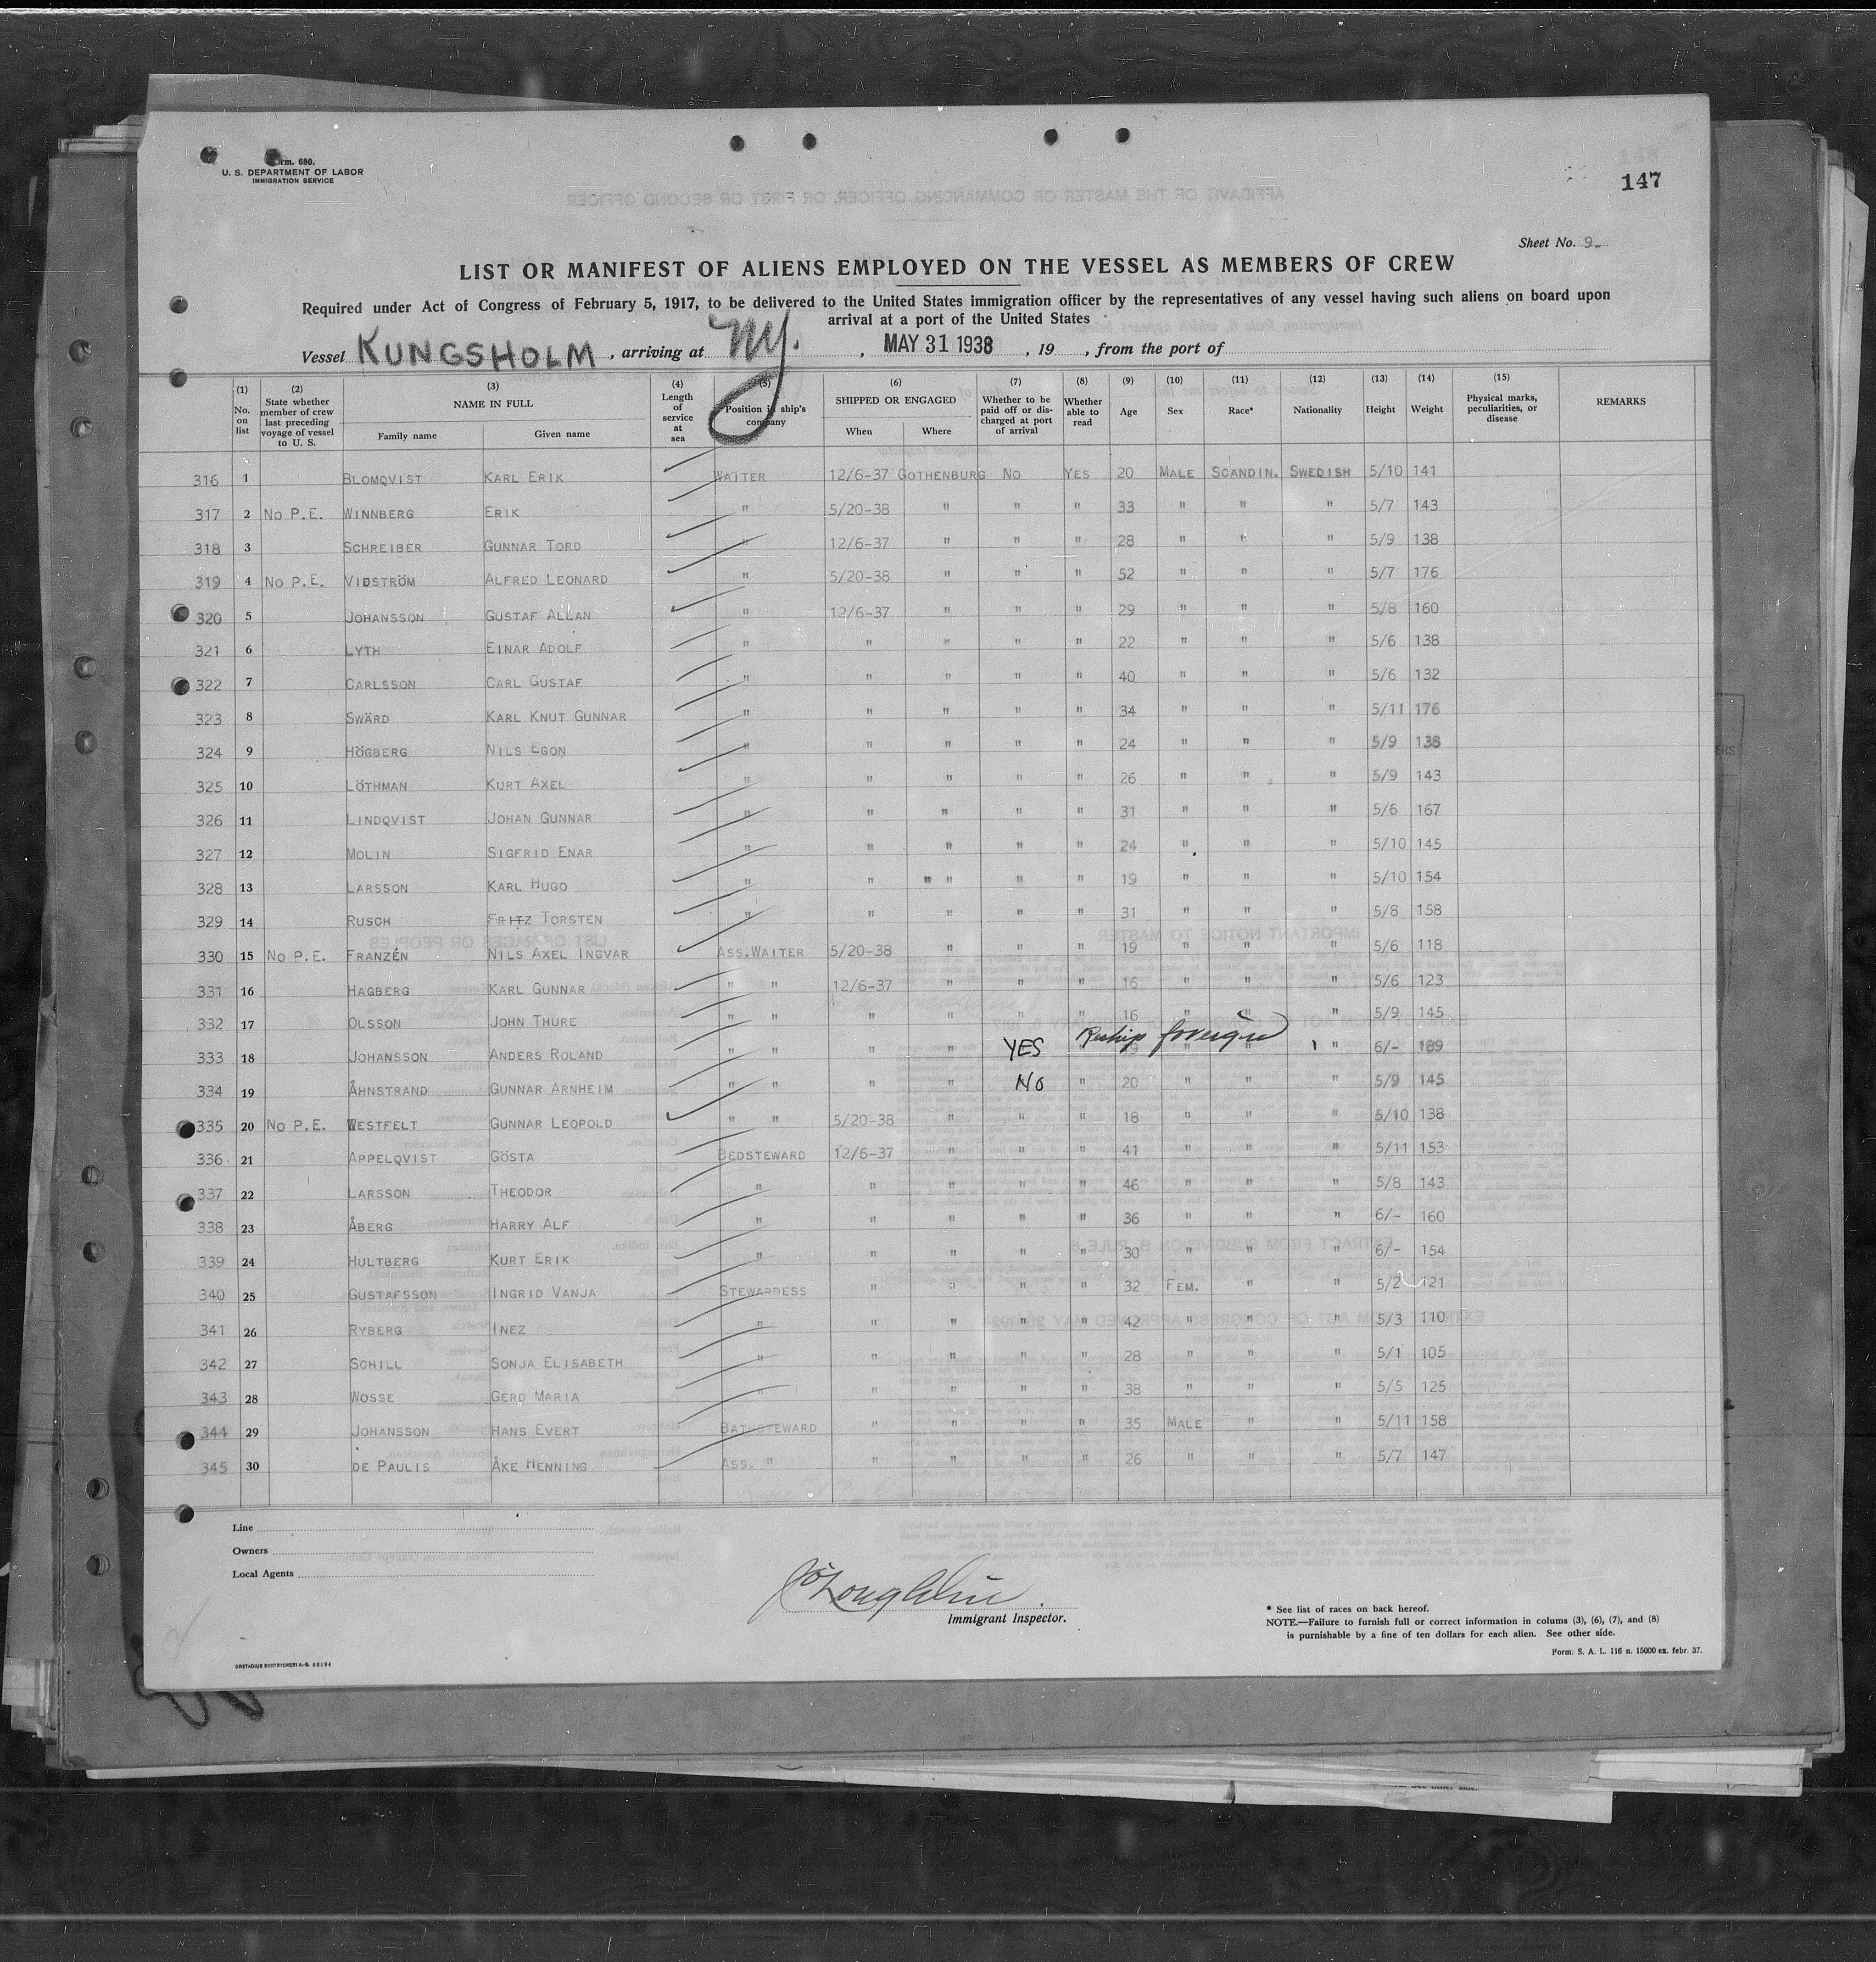 Form. 680.
U. S. DEPARTMENT OF LABOR
IMMIGRATION SERVICE
147
Sheet No. 9
LIST OR MANIFEST OF ALIENS EMPLOYED ON THE VESSEL AS MEMBERS OF CREW
Required under Act of Congress of February 5, 1917, to be delivered to the United States immigration officer by the representatives of any vessel having such aliens on board upon
arrival at a port of the United States
Vessel KUNGSHOLM, arriving at NY. , MAY 31 1938 , 19 , from the port of
(1) No. on list (2) State whether member of crew last preceding voyage of vessel to U. S. (3) NAME IN FULL Family name Given name (4) Length of service at sea (5) Position in ship's company (6) SHIPPED OR ENGAGED When Where (7) Whether to be paid off or discharged at port of arrival (8) Whether able to read (9) Age (10) Sex (11) Race* (12) Nationality (13) Height (14) Weight (15) Physical marks, peculiarities, or disease REMARKS
316 1 BLOMQVIST KARL ERIK WAITER 12/6-37 GOTHENBURG NO YES 20 MALE SCANDIN. SWEDISH 5/10 141
317 2 NO P.E. WINNBERG ERIK " 5/20-38 " " " 33 " " " 5/7 143
318 3 SCHREIBER GUNNAR TORD " 12/6-37 " " " 28 " " " 5/9 138
319 4 NO P.E. VIDSTRÖM ALFRED LEONARD " 5/20-38 " " " 52 " " " 5/7 176
320 5 JOHANSSON GUSTAF ALLAN " 12/6-37 " " " 29 " " " 5/8 160
321 6 LYTH EINAR ADOLF " " " " " 22 " " " 5/6 138
322 7 CARLSSON CARL GUSTAF " " " " " 40 " " " 5/6 132
323 8 SWÄRD KARL KNUT GUNNAR " " " " " 34 " " " 5/11 176
324 9 HÖGBERG NILS EGON " " " " " 24 " " " 5/9 138
325 10 LÖTHMAN KURT AXEL " " " " " 26 " " " 5/9 143
326 11 LINDQVIST JOHAN GUNNAR " " " " " 31 " " " 5/6 167
327 12 MOLIN SIGFRID ENAR " " " " " 24 " " " 5/10 145
328 13 LARSSON KARL HUGO " " " " " 19 " " " 5/10 154
329 14 RUSCH FRITZ TORSTEN " " " " " 31 " " " 5/8 158
330 15 NO P.E. FRANZÉN NILS AXEL INGVAR ASS.WAITER 5/20-38 " " " 19 " " " 5/6 118
331 16 HAGBERG KARL GUNNAR " " 12/6-37 " " " 16 " " " 5/6 123
332 17 OLSSON JOHN THURE " " " " " " 16 " " " 5/9 145
333 18 JOHANSSON ANDERS ROLAND " " " " YES Reship foreign " 6/- 189
334 19 ÅHNSTRAND GUNNAR ARNHEIM " " " " NO " 20 " " " 5/9 145
335 20 NO P.E. WESTFELT GUNNAR LEOPOLD " " 5/20-38 " " " 18 " " " 5/10 138
336 21 APPELQVIST GÖSTA BEDSTEWARD 12/6-37 " " " 41 " " " 5/11 153
337 22 LARSSON THEODOR " " " " " 46 " " " 5/8 143
338 23 ÅBERG HARRY ALF " " " " " 36 " " " 6/- 160
339 24 HULTBERG KURT ERIK " " " " " 30 " " " 6/- 154
340 25 GUSTAFSSON INGRID VANJA STEWARDESS " " " " 32 FEM. " " 5/2 121
341 26 RYBERG INEZ " " " " " 42 " " " 5/3 110
342 27 SCHILL SONJA ELISABETH " " " " " 28 " " " 5/1 105
343 28 WOSSE GERD MARIA " " " " " 38 " " " 5/5 125
344 29 JOHANSSON HANS EVERT BATHSTEWARD " " " " 35 MALE " " 5/11 158
345 30 DE PAULIS ÅKE HENNING ASS. " " " " " 26 " " " 5/7 147
Line
Owners
Local Agents
Immigrant Inspector.
* See list of races on back hereof.
NOTE.—Failure to furnish full or correct information in colums (3), (6), (7), and (8)
is purnishable by a fine of ten dollars for each alien. See other side.
Form. S. A. L. 116 n. 15000 ex. febr. 37.